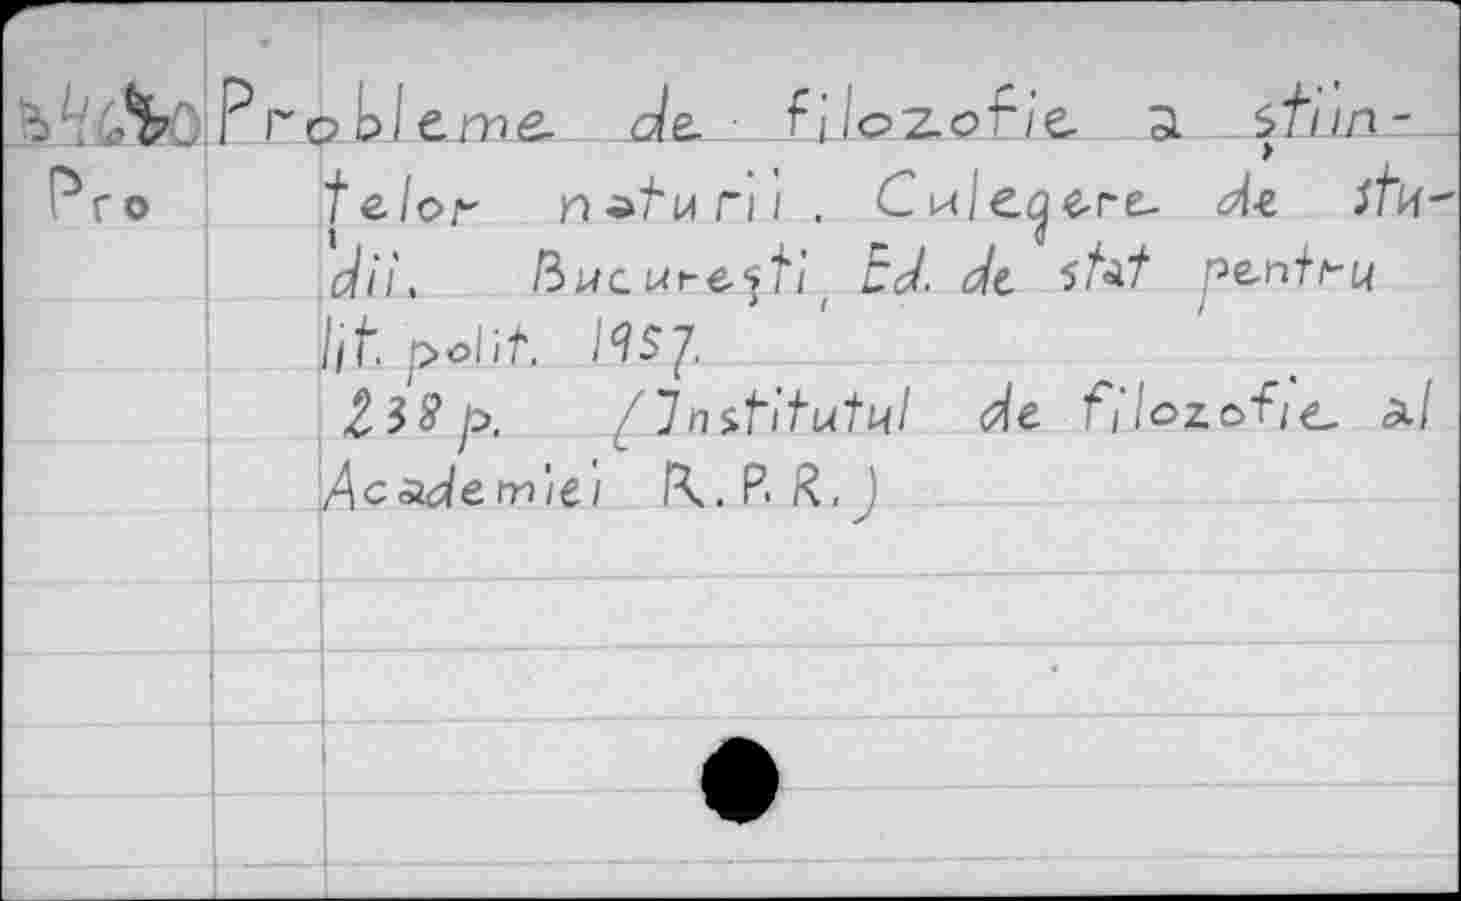 Probleme de filozofie a științ-
Pro telor naturii. Culegere de stu-
dii. București, Ed. de stat pentru
lit. polit. 1957.
238 p. (Institutul de filozofie al
Academiei R.P.R.)